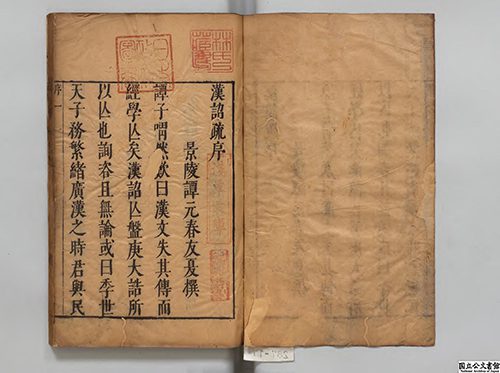 漢詔疏序
景陵譚元春友夏撰
譚子喟然歎曰漢文失其傳而
經學亾矣漢詔亾盤庚大誥所
以亾也詢咨且無論或曰季世
天子務繁緒廣漢之時君與民
序 一
国立公文書館
National Archives of Japan